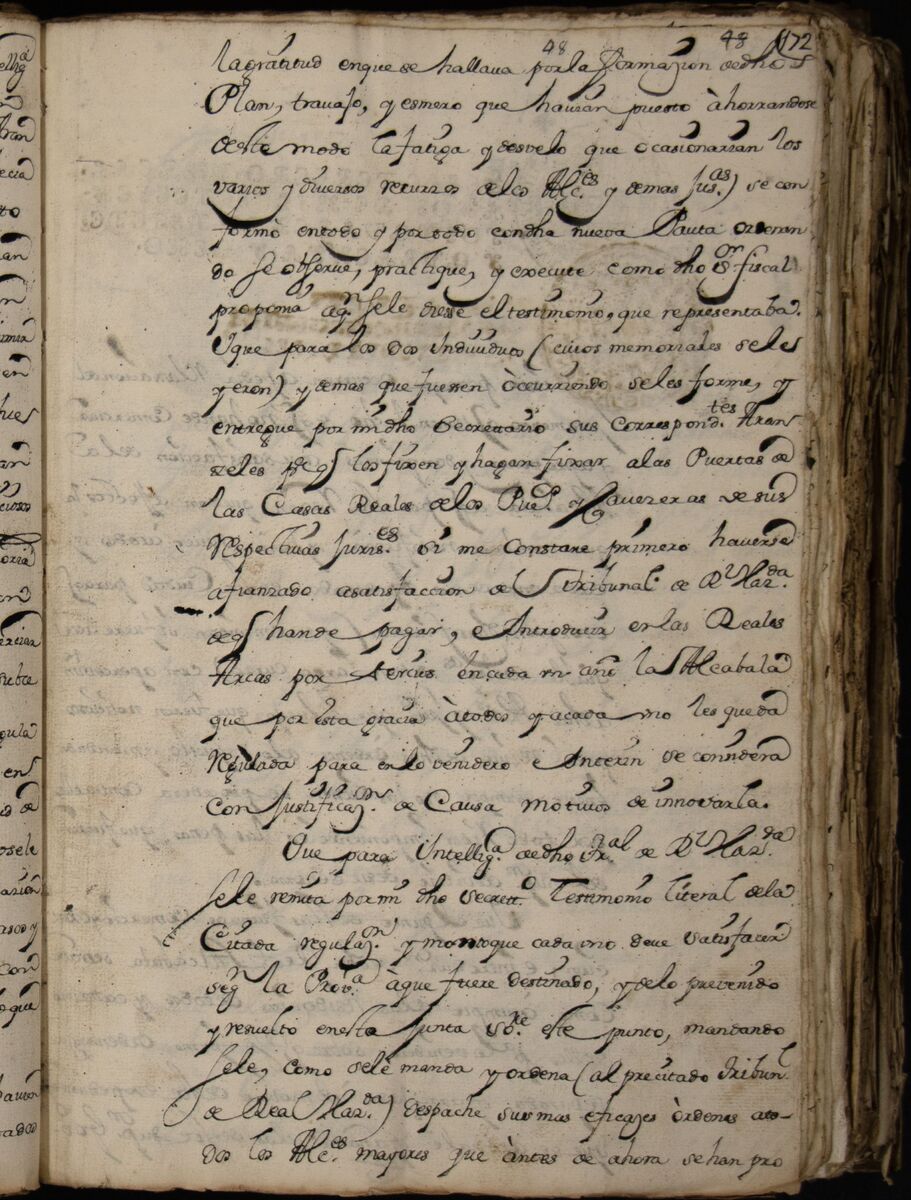 48 48 172
la gratitud en que se hallava por la formazion de dho
Plan, travajo, y esmero que havian puesto àhorrandose
de este modo la fatiga y desvelo que ocasionarian los
varios y diversos recursos de los Alc.es y demas Jus.as) se con
formò en todo y por todo con dha nueva Pauta ordenan
do se observe, practique, y execute como dho S.or fiscal
proponia aq.n se le diesse el testimonio, que representaba.
Y que para los dos Individuos (cuios memoriales se le
yeron) y demas que fuessen òcurriendo se les forme, y
entregue por mi dho Secrettario sus correspond.tes Aran
zeles p.a q.e los fixen y hagan fixar a las Puertas de
las Casas Reales de los Pue.os y Cavezeras de sus
respectivas Juris.es si me constare primero haverse
afianzado a satisfaccion del Tribunal de R.l Haz.da
de q.e han de pagar, e Introducir en las Reales
Arcas por tercios en cada un año la Alcabala
que por esta gracia à todos y a cada uno les queda
regulada para en lo venidero e Interin se considera
con justificaz.on de Causa motivos de innovarla.
Que para Intellig.a de dho Tr.al de R.l Haz.da
se le remita por mi dho Secrett.o Testimonio literal de la
Citada regulaz.on y monto que cada uno deve satisfacer
seg.n la Prov.a à que fuere destinado, y de lo prevenido
y resuelto en esta Junta so.re este punto, mandando
sele, como sele manda y ordena (al precitado Tribun.l
de Real Haz.da) despache sus mas eficazes òrdenes a to-
dos los Alc.es mayores que àntes de ahora se han pro